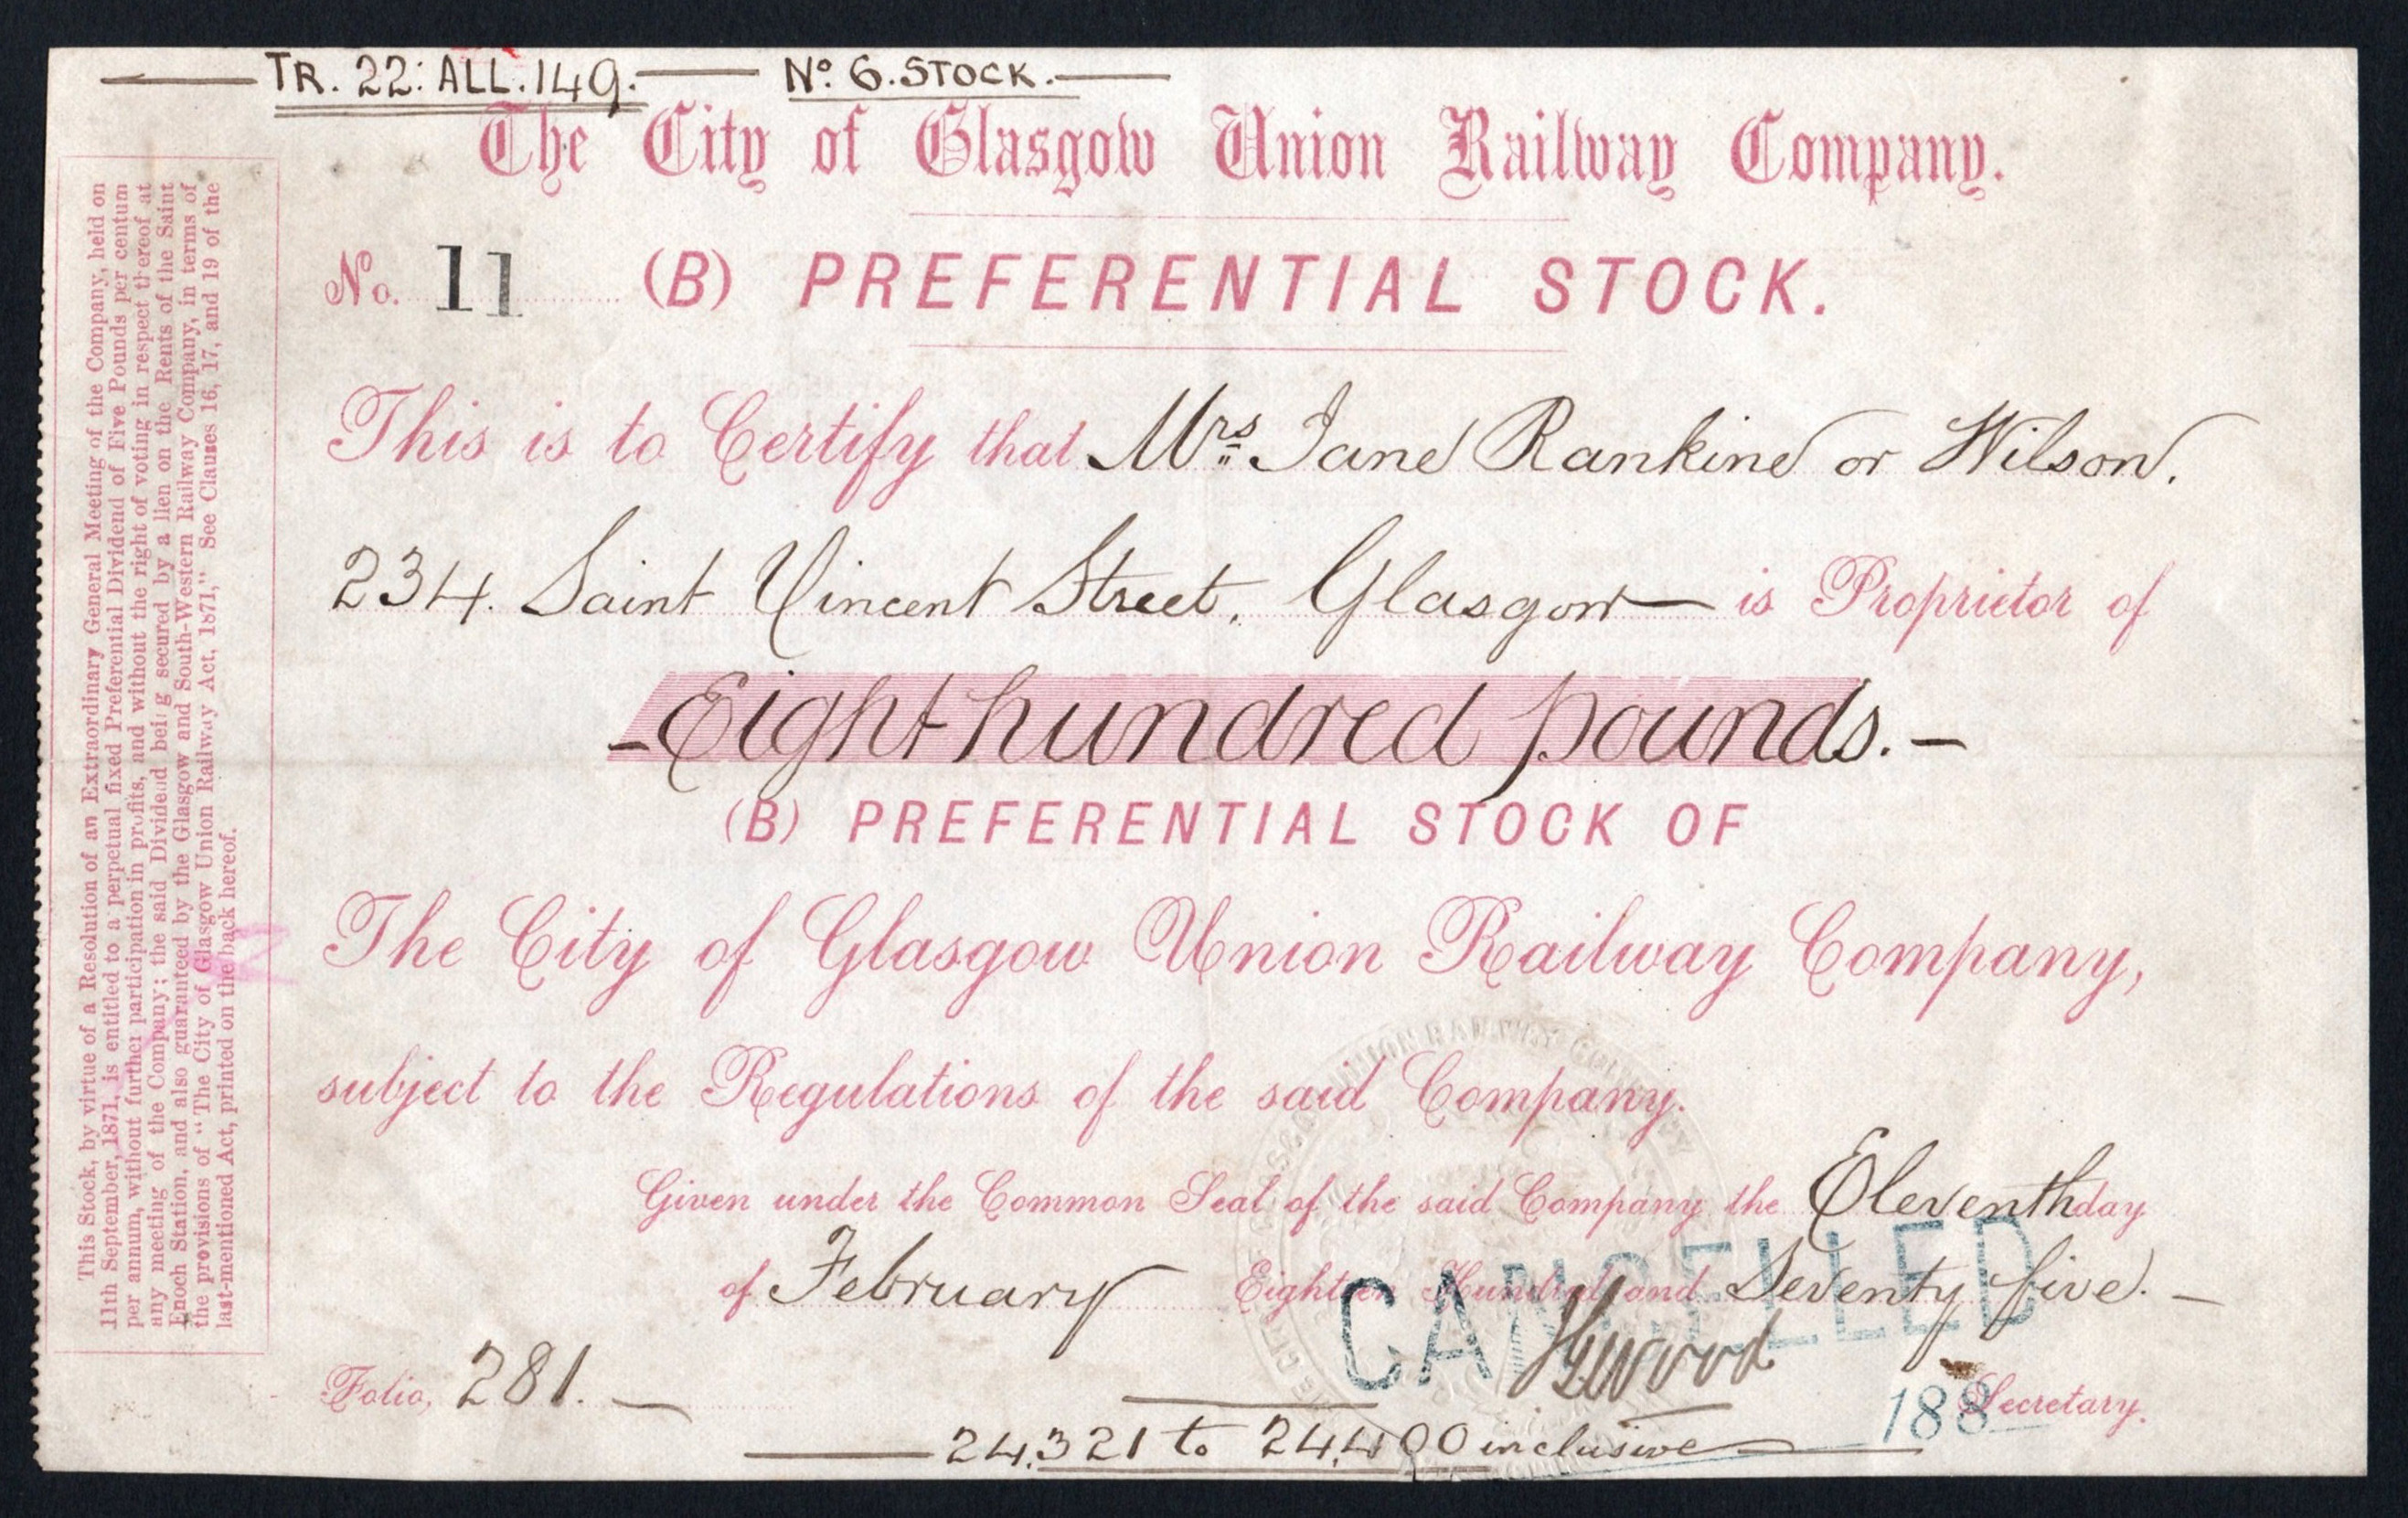 TR. 22: ALL. 149. No. 6. STOCK.
The City of Glasgow Union Railway Company.
No. 11 (B) PREFERENTIAL STOCK.
This is to Certify that Mrs Jane Rankine or Wilson.
234. Saint Vincent Street, Glasgow is Proprietor of
Eight hundred pounds.
(B) PREFERENTIAL STOCK OF
The City of Glasgow Union Railway Company,
subject to the Regulations of the said Company.
Given under the Common Seal of the said Company the Eleventh day
of February Eighteen Hundred and Seventy five.
CANCELLED
Folio, 281. Secretary.
188
24,321 to 24,400 inclusive
This Stock, by virtue of a Resolution of an Extraordinary General Meeting of the Company, held on
11th September, 1871, is entitled to a perpetual fixed Preferential Dividend of Five Pounds per centum
per annum, without further participation in profits, and without the right of voting in respect thereof at
any meeting of the Company; the said Dividend being secured by a lien on the Rents of the Saint
Enoch Station, and also guaranteed by the Glasgow and South-Western Railway Company, in terms of
the provisions of "The City of Glasgow Union Railway Act, 1871," See Clauses 16, 17, and 19 of the
last-mentioned Act, printed on the back hereof.